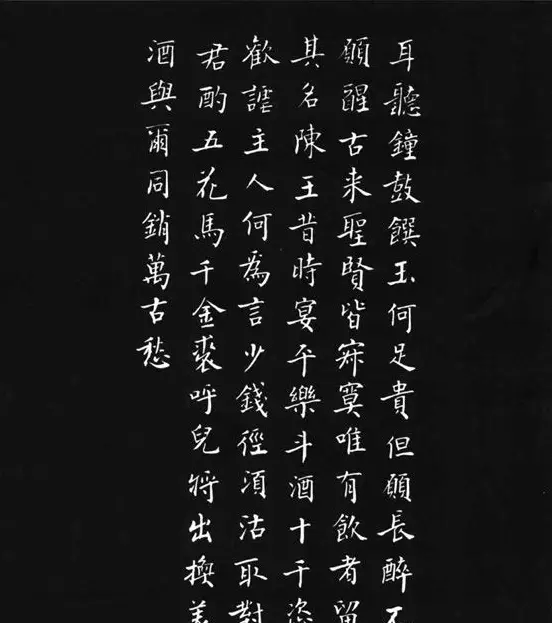 耳聽鐘鼓饌玉何足貴但願長醉不
願醒古来聖賢皆寂寞唯有飲者留
其名陳王昔時宴平樂斗酒十千恣
歡謔主人何為言少錢徑須沽取對
君酌五花馬千金裘呼兒將出換美
酒與爾同銷萬古愁